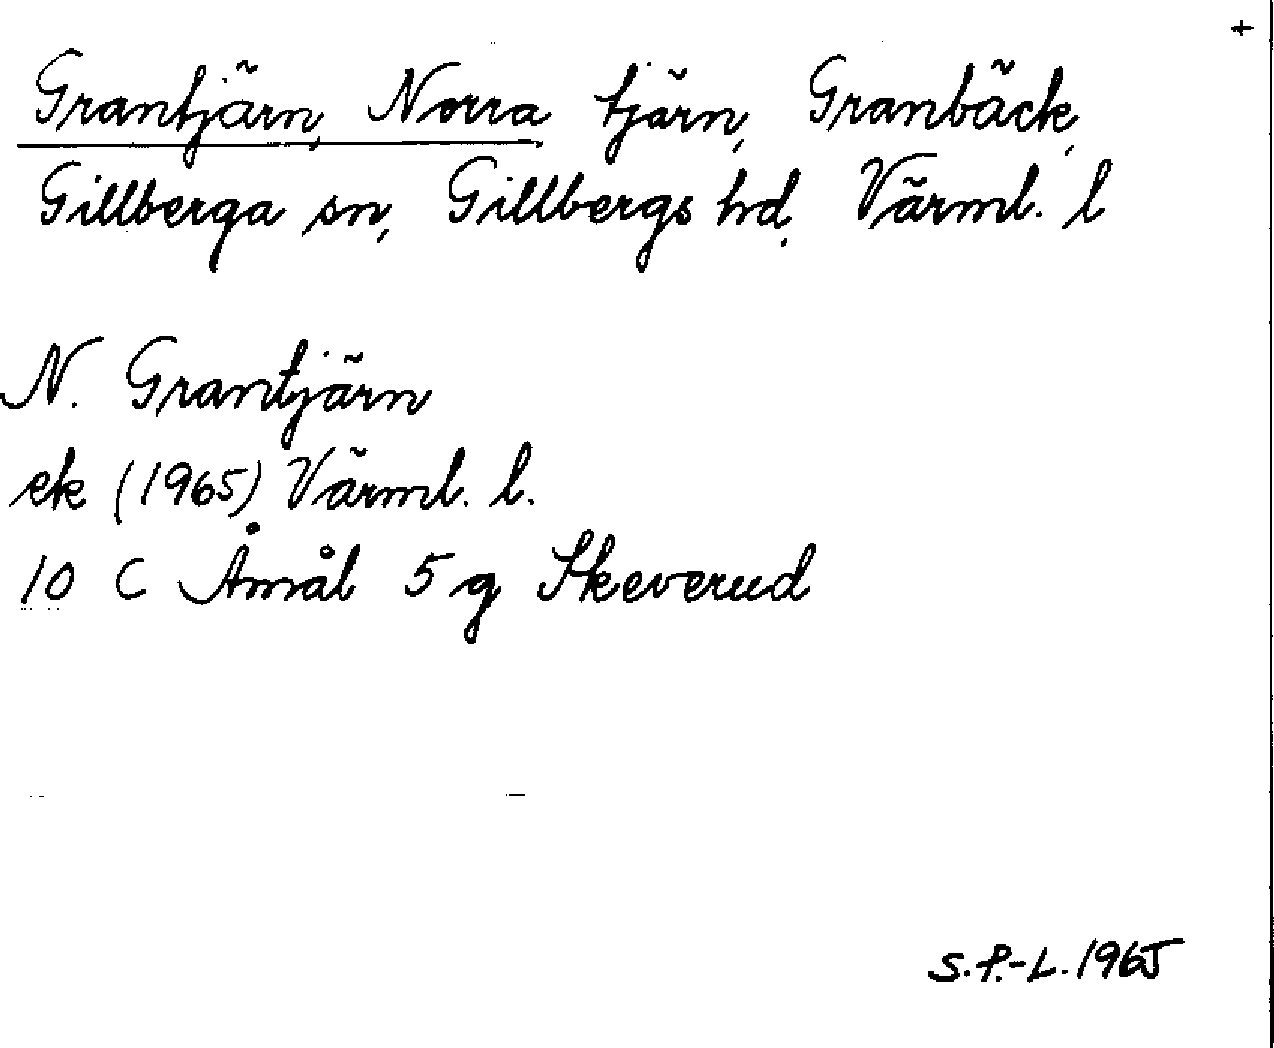 +
Grantjärn, Norra tjärn, Granbäck,
Gillberga sn, Gillbergs hd, Värml. l
N. Grantjärn
ek (1965) Värml. l.
10 C Åmål 5 g Skeverud
S.P.-L. 1965